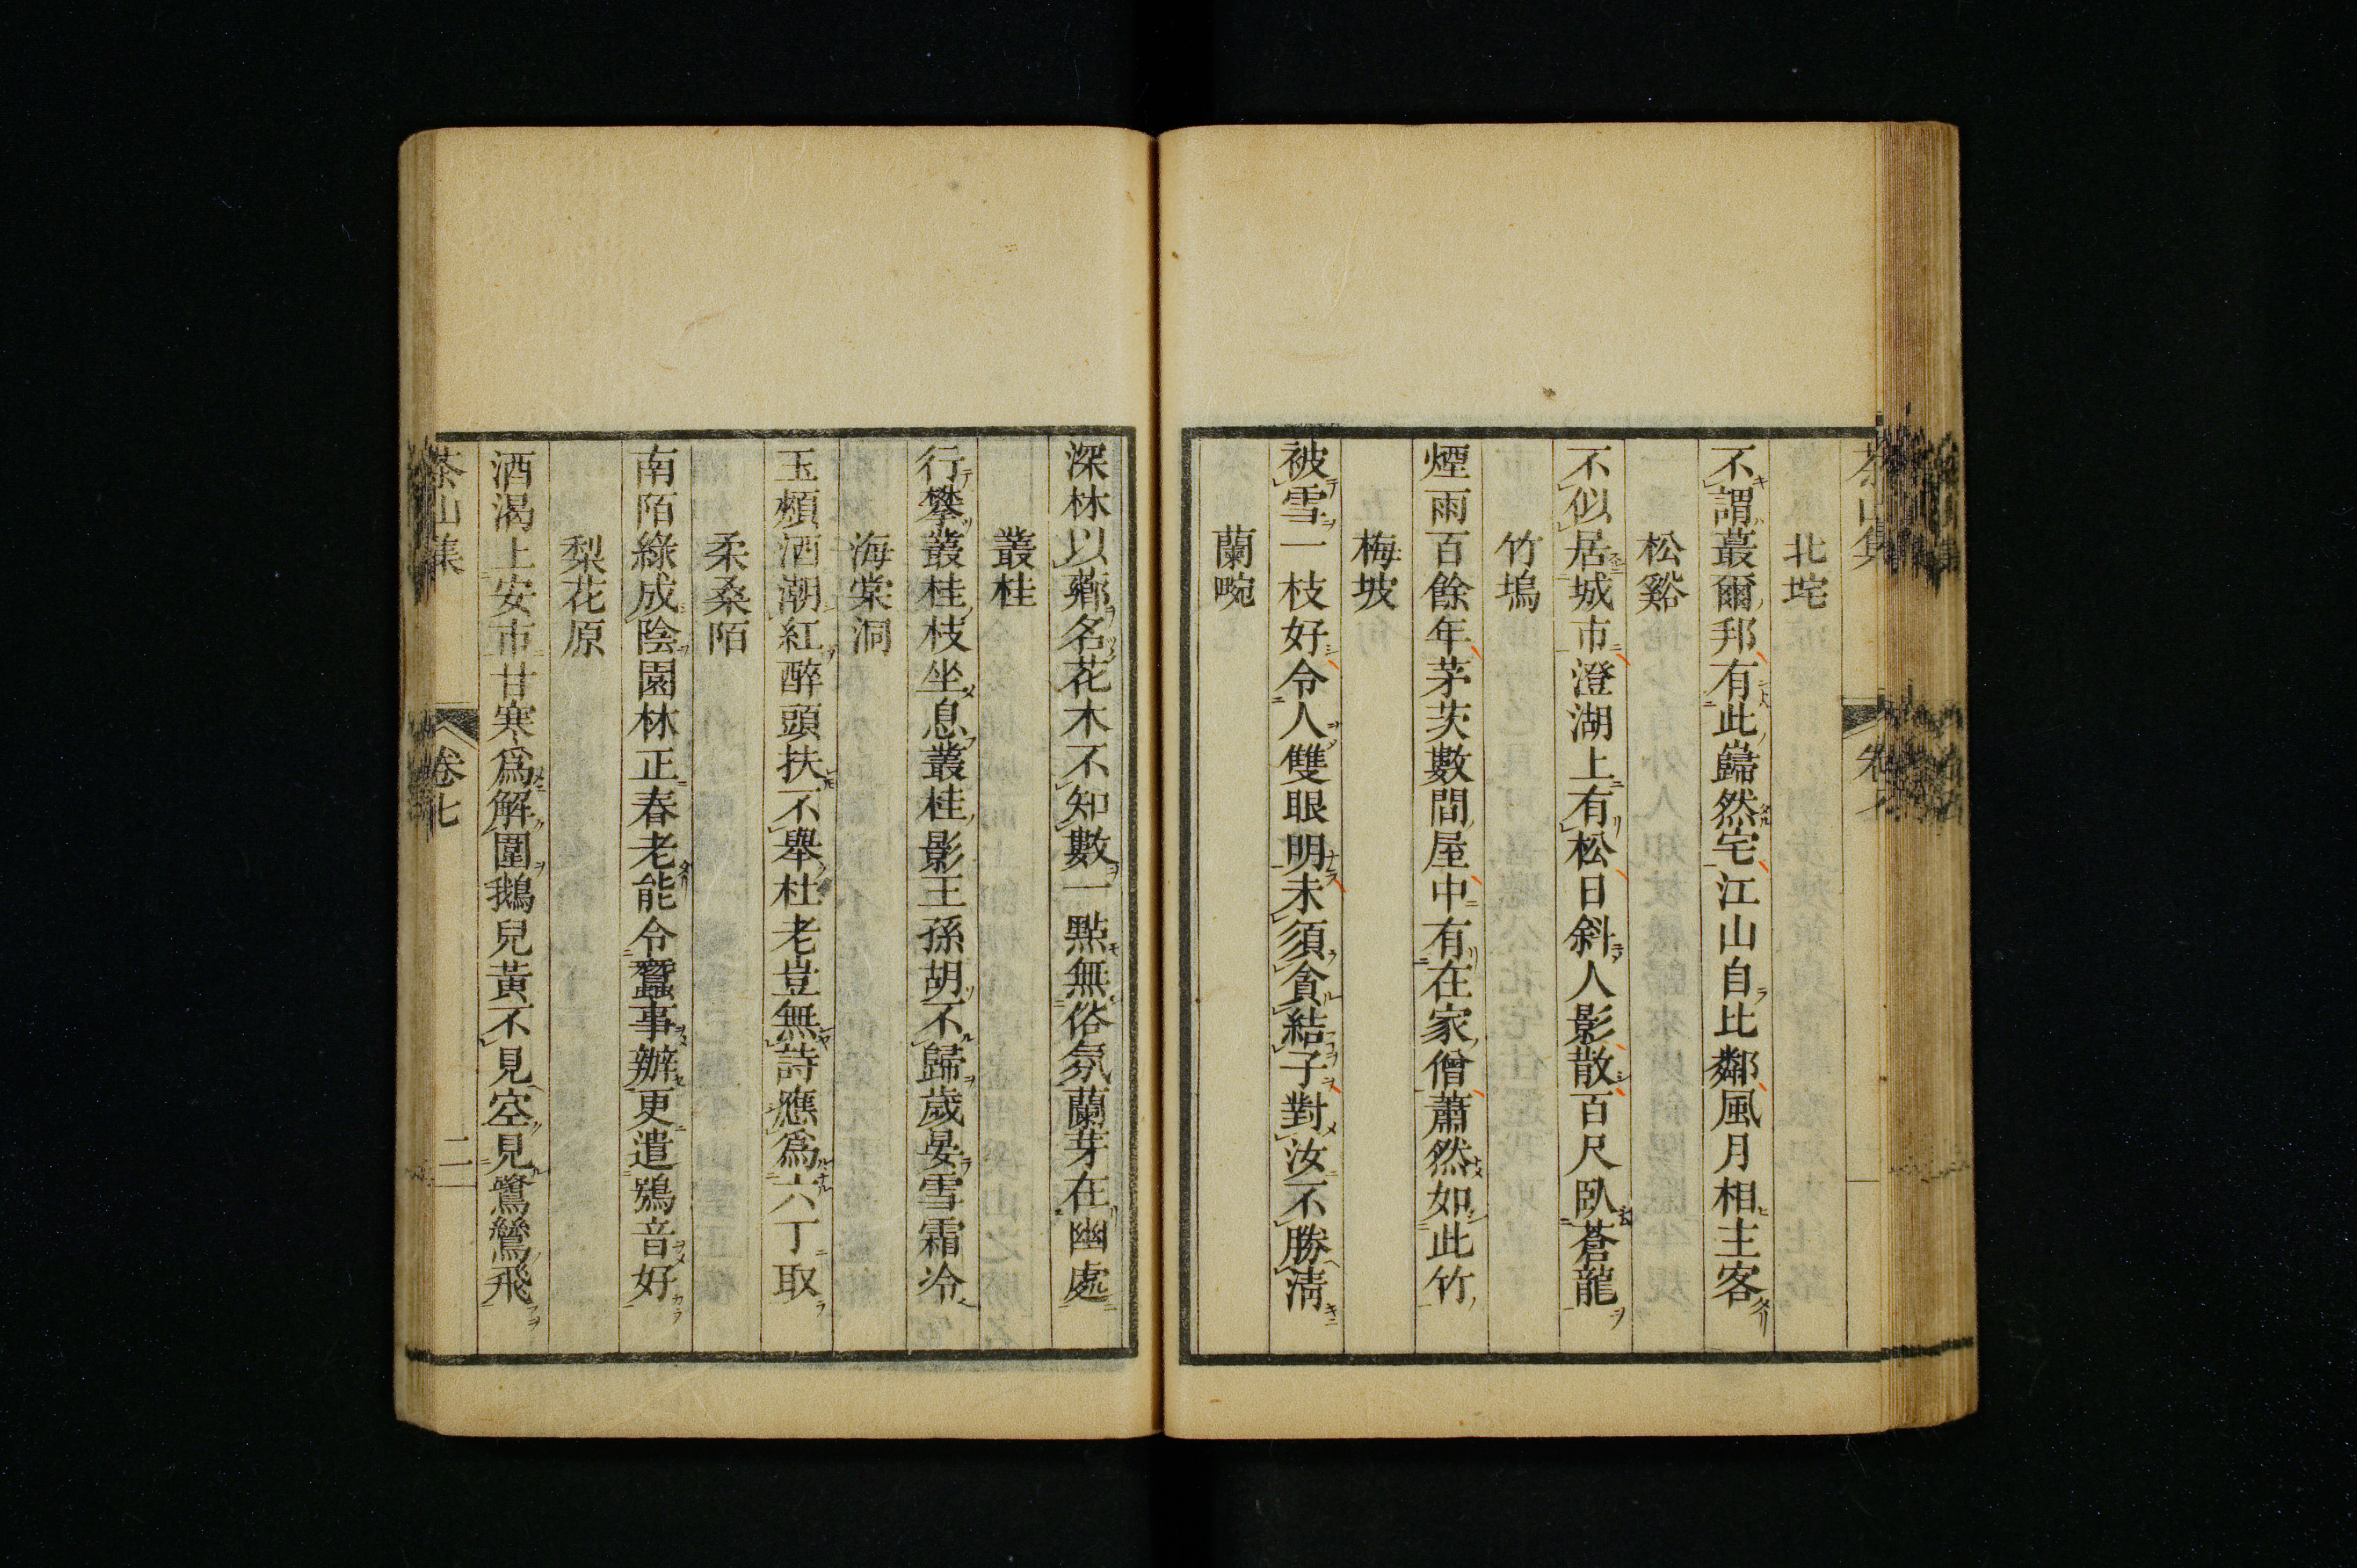 北垞
不謂蕞爾邦有此巋然宅江山自比鄰風月相主客
松谿
不似居城市澄湖上有松日斜人影散百尺臥蒼龍
竹塢
煙雨百餘年茅茨數間屋中有在家僧蕭然如此竹
梅坡
被雪一枝好令人雙眼明未須貪結子對汝不勝淸
蘭畹
深林以薌名花木不知數一點無俗氛蘭芽在幽處
叢桂
行攀叢桂枝坐息叢桂影王孫胡不歸歲晏雪霜冷
海棠洞
玉頰酒潮紅醉頭扶不舉杜老豈無詩應爲六丁取
柔桑陌
南陌綠成陰園林正春老能令蠶事辦更遣鴞音好
梨花原
酒渴上安市甘寒爲解圍鵝兒黃不見空見鷺鷥飛
茶山集 卷七 二